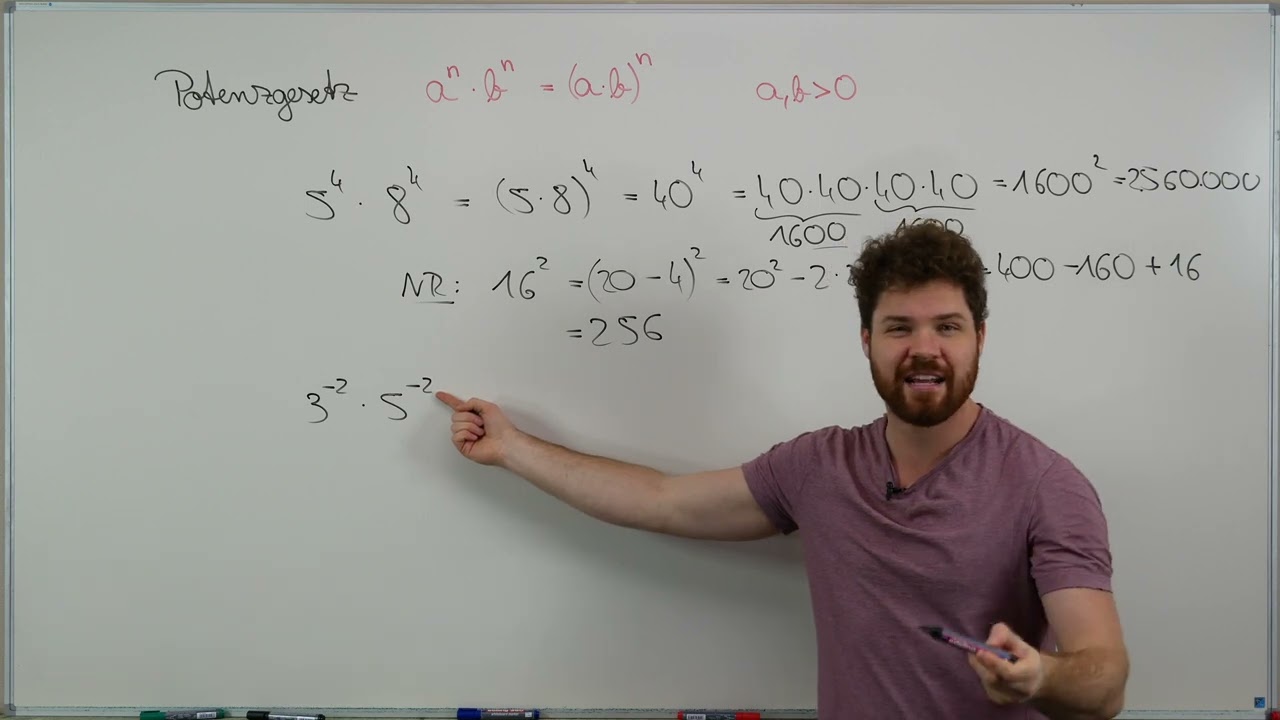 Potenzgesetz aⁿ · bⁿ = (a·b)ⁿ a,b>0
5⁴ · 8⁴ = (5·8)⁴ = 40⁴ = 40·40·40·40 = 1600² = 2560.000
1600 1600
NR: 16² = (20 − 4)² = 20² − 2 · 400 − 160 + 16
= 256
3⁻² · 5⁻²